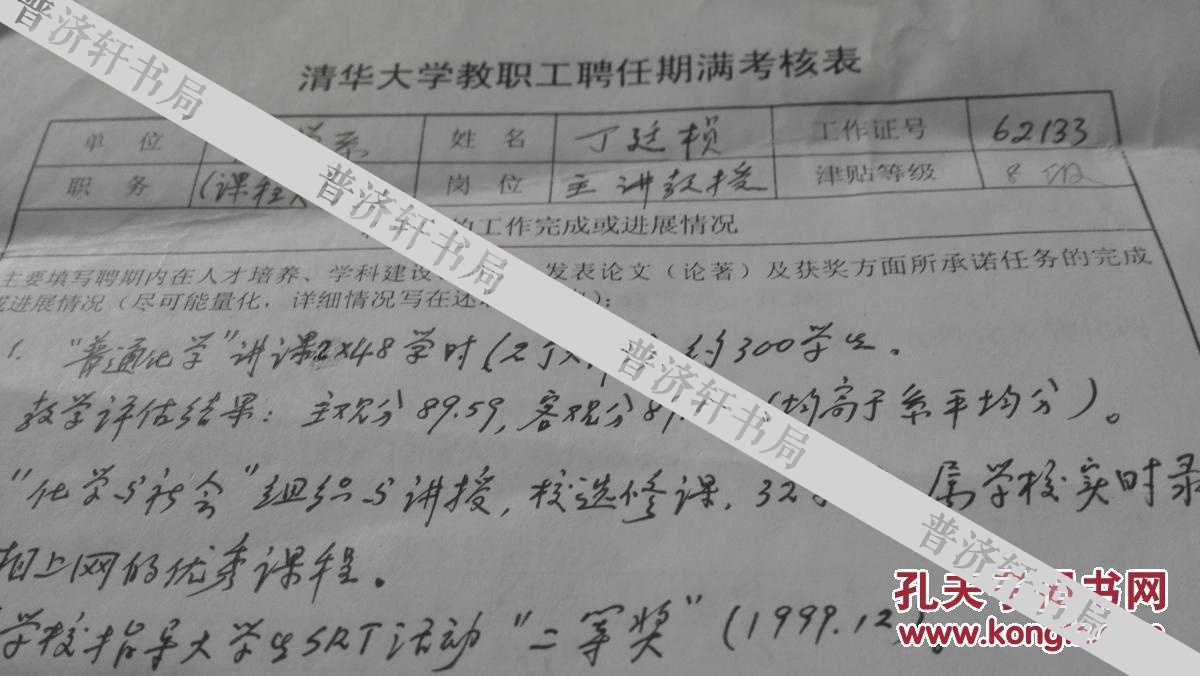 清华大学教职工聘任期满考核表
单位 学系 姓名 丁廷桢 工作证号 62133
职务 (课程 岗位 主讲教授 津贴等级 8级
的工作完成或进展情况
主要填写聘期内在人才培养、学科建设 发表论文(论著)及获奖方面所承诺任务的完成
或进展情况(尽可能量化,详细情况写在述 ):
1. "普通化学"讲课2×48学时(2个 约300学生。
教学评估结果:主观分89.59,客观分 (均高于系平均分)。
"化学与社会"组织与讲授,校选修课,32 属学校实时录
相上网的优秀课程。
学校指导大学生SRT活动"二等奖"(1999.12)。
普济轩书局
普济轩书局
普济轩书局
普济轩书局
孔夫子旧书网
www.kongfz.com